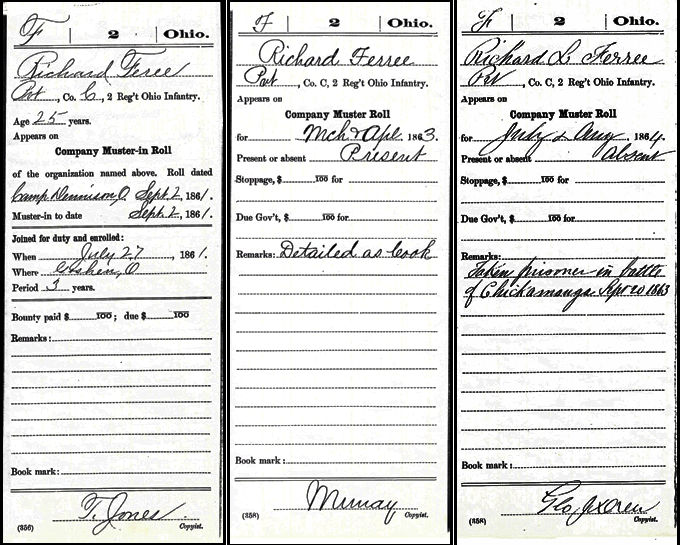 F 2 Ohio.
Richard Feree
Pvt, Co. C, 2 Reg't Ohio Infantry.
Age 25 years.
Appears on
Company Muster-in Roll
of the organization named above. Roll dated
Camp Dennison, O. Sept. 2, 1861.
Muster-in to date Sept. 2, 1861.
Joined for duty and enrolled:
When July 27, 1861.
Where Goshen, O
Period 3 years.
Bounty paid $ 100; due $ 100
Remarks:
Book mark:
T. Jones
(356) Copyist.
F 2 Ohio.
Richard Ferree
Pvt, Co. C, 2 Reg't Ohio Infantry.
Appears on
Company Muster Roll
for Mch & Apl, 1863.
Present or absent Present
Stoppage, $ 100 for
Due Gov't, $ 100 for
Remarks: Detailed as Cook
Book mark:
Murray
(358) Copyist.
F 2 Ohio.
Richard L Ferree
Pvt, Co. C, 2 Reg't Ohio Infantry.
Appears on
Company Muster Roll
for July & Aug, 1864.
Present or absent Absent
Stoppage, $ 100 for
Due Gov't, $ 100 for
Remarks:
Taken prisoner in battle
of Chickamauga Sept 20 1863
Book mark:
Geo
(358) Copyist.